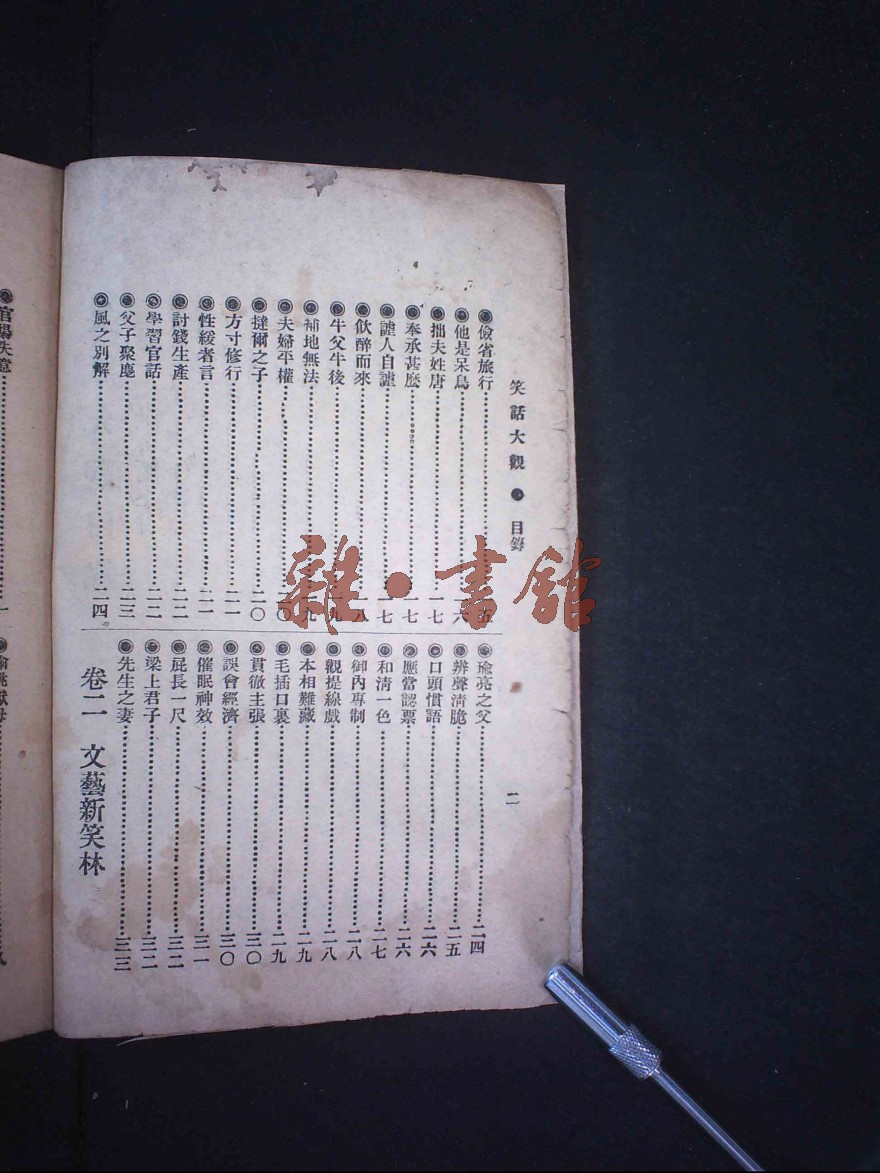 笑話大觀 目錄 二
儉省旅行 五
他是呆鳥 六
拙夫姓唐 一七
奉承甚麽 一七
譃人自譃 一七
飲醉而來 八
牛父牛後 一九
補地無法 一九
夫婦平權 二〇
撻爾之子 二〇
方寸修行 二一
性緩者言 二一
討錢生產 二二
學習官話 二二
父子聚麀 二三
風之別解 二四
瑜亮之父 二四
辨聲淸脆 二五
口頭慣語 二六
應當認票 二六
和淸一色 二七
御內專制 二八
觀提線戲 二八
本相難藏 二九
毛插口裏 二九
貫徹主張 三〇
誤會經濟 三〇
催眠神效 三一
屁長一尺 三二
梁上君子 三二
先生之妻 三三
卷二 文藝新笑林
失意
雜·書館